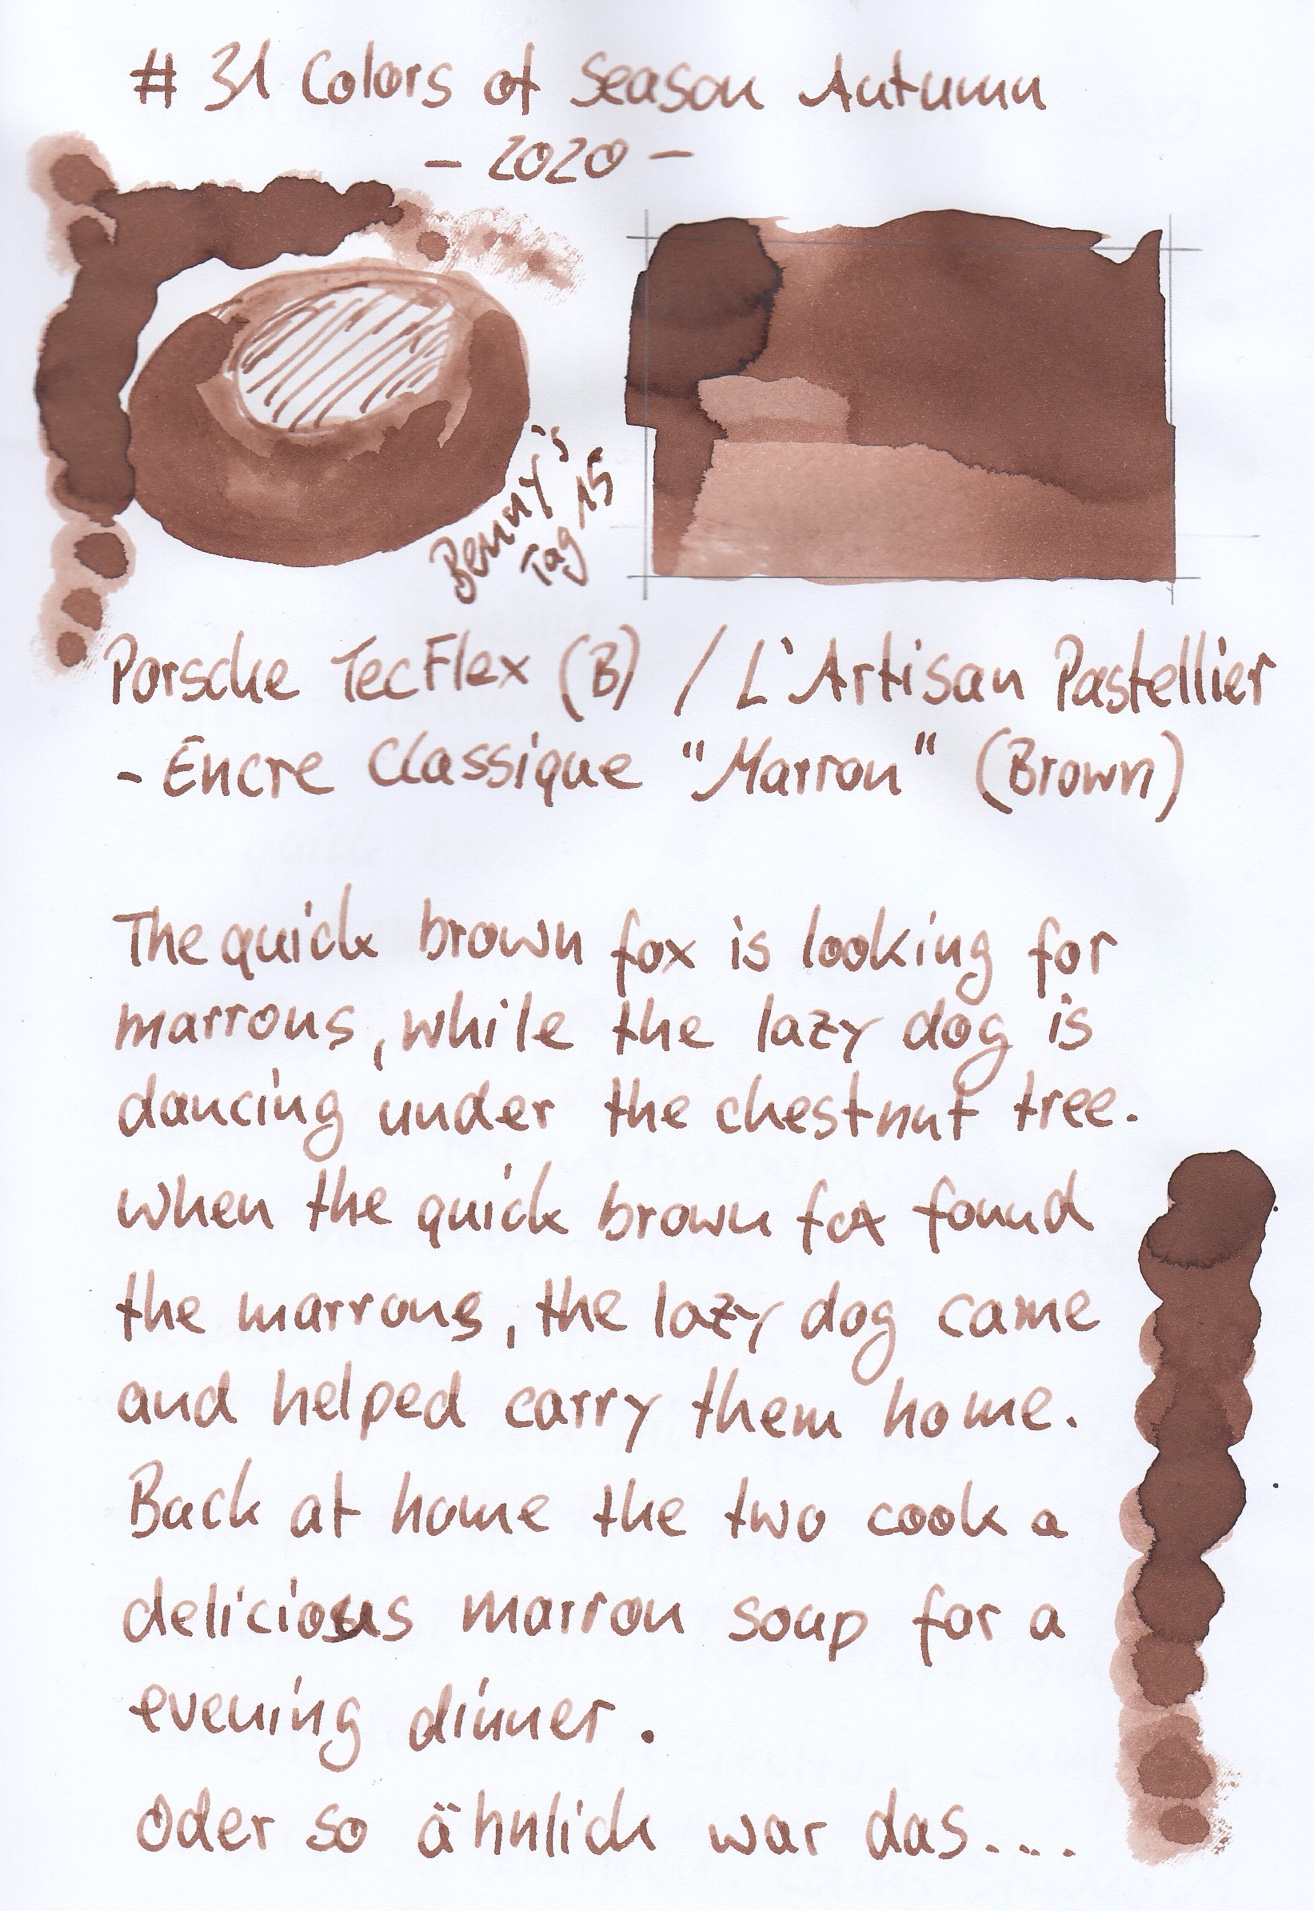 # 31 Colors of Season Autumn
- 2020 -
Benny's
Tag 15
Porsche TecFlex (B) / L'Artisan Pastellier
- Encre Classique "Marron" (Brown)
The quick brown fox is looking for
marrons, while the lazy dog is
dancing under the chestnut tree.
When the quick brown fox found
the marrons, the lazy dog came
and helped carry them home.
Back at home the two cook a
delicious marron soup for a
evening dinner.
Oder so ähnlich war das....